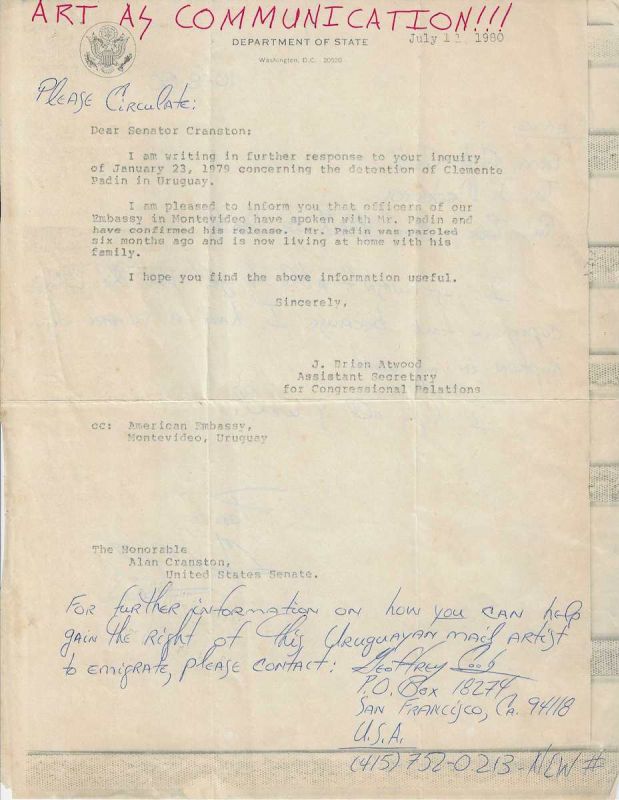 ART AS COMMUNICATION!!!
DEPARTMENT OF STATE
July 11 1980
Washington, D.C. 20520
PLEASE CIRCULATE:
Dear Senator Cranston:
I am writing in further response to your inquiry
of January 23, 1979 concerning the detention of Clemente
Padin in Uruguay.
I am pleased to inform you that officers of our
Embassy in Montevideo have spoken with Mr. Padin and
have confirmed his release. Mr. Padin was paroled
six months ago and is now living at home with his
family.
I hope you find the above information useful.
Sincerely,
J. Brian Atwood
Assistant Secretary
for Congressional Relations
cc: American Embassy,
Montevideo, Uruguay
The Honorable
Alan Cranston,
United States Senate.
FOR further information on how you CAN help
gain the right of this Uruguayan mail artist
to emigrate, please contact: Geoffrey Cook
P.O. Box 18274
SAN FRANCISCO, Ca. 94118
U.S.A.
(415) 752-0213 - NEW #